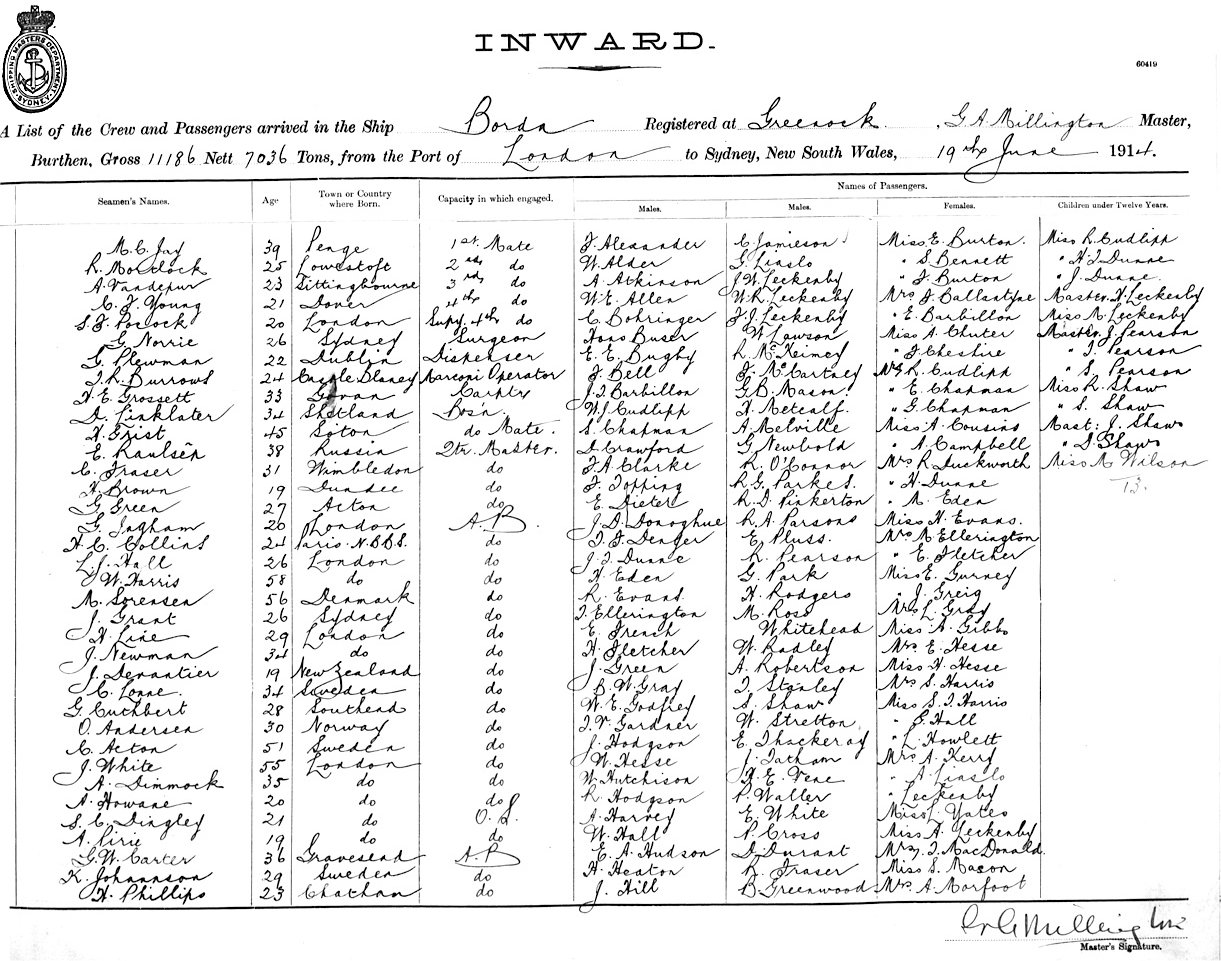 SHIPPING MASTERS DEPARTMENT. SYDNEY.
INWARD.
60419
A List of the Crew and Passengers arrived in the Ship Borda Registered at Greenock, G A Millington Master,
Burthen, Gross 11186 Nett 7036 Tons, from the Port of London to Sydney, New South Wales, 19th June 1914.
Seamen's Names. Age Town or Country where Born. Capacity in which engaged. Names of Passengers.
Males. Males. Females. Children under Twelve Years.
M. C. Jay 39 Penge 1st Mate F. Alexander C. Jamieson Miss E. Burton. Miss R. Cudlipp
R. Mortlock 25 Lowestoft 2nd do W. Alder G. Liaslo " S. Bennett " H. J. Dunne
A. Vandepur 23 Sittingbourne 3rd do A. Atkinson J. W. Leckenby " J. Burton " J. Dunne
C. F. Young 21 Dover 4th do W. E. Allen W. R. Leckenby Mrs J. Ballantyne Master H. Leckenby
S. F. Pocock 20 London Supy. 4th do C. Bohringer F. J. Leckenby " E. Barbillon Miss M. Leckenby
G. Norrie 26 Sydney Surgeon Hans Buser W. Lawson Miss A. Chuter Master J. Pearson
G. Plewman 22 Dublin Dispenser E. E. Bugby R. McKeimey " J. Cheshire " J. Pearson
J. R. Burrows 24 Castle Blaney Marconi Operator J. Bell J. McCartney Mrs R. Cudlipp " S. Pearson
H. E. Grossett 33 Govan Carptr J. J. Barbillon G. B. Mason. " E. Chapman Miss R. Shaw
D. Linklater 34 Shetland Bos'n. W. J. Cudlipp H. Metcalf. " G. Chapman " S. Shaw
H. Frist 45 Soton do Mate. S. Chapman A. Melville Miss A. Cousins Mast: J. Shaw
E. Raulsep 38 Russia Qtr. Master. D. Crawford G. Newbold " A. Campbell " D. Shaw
C. Fraser 31 Wimbledon do F. A. Clarke R. O'Connor Mrs R. Duckworth Miss M. Wilson
H. Brown 19 Dundee do F. Topping R. G. Parkes. " H. Dunne 13.
G. Green 27 Acton do E. Dieter R. D. Pinkerton " M. Eden
G. Ingham 26 London A.B. J. D. Donoghue R. A. Parsons Miss H. Evans.
H. C. Collins 24 Paris. do J. F. Denger E. Pluss. Mrs M. Ellerington
L. J. Hall 26 London do J. J. Dunne R. Pearson " E. Fletcher
W. Harris 58 do do H. Eden G. Park Miss E. Gurney
M. Sorensen 56 Denmark do R. Evans. H. Rodgers " J. Greig
J. Grant 26 Sydney do J. Ellerington M. Ross Mrs L. Gray
H. Line 29 London do E. French Whitehead Miss A. Gibbs
J. Newman 34 do do H. Fletcher W. Radley Mrs E. Hesse
J. Devantier 19 New Zealand do J. Green A. Robertson Miss H. Hesse
C. Lonne. 34 Sweden do B. W. Gray J. Stanley Mrs S. Harris
G. Cuthbert 28 Southend do W. E. Godfrey S. Shaw Miss S. J. Harris
O. Andersen 30 Norway do J. V. Gardner W. Stretton " E. Hall
C. Acton 51 Sweden do J. Hodgson E. Thackeray " L. Howlett
J. White 55 London do W. Hesse J. Tatham Mrs A. Kerry
A. Dimmock 35 do do W. Hutchison H. E. Vene " A. Liaslo
A. Howane 20 do do R. Hodgson P. Waller " Leckenby
S. C. Dingley 21 do O.S. A. Harvey E. White Miss L. Yates
A. Pirie 19 do do W. Hall P. Cross Miss A. Leckenby
G. W. Carter 36 Gravesend A.B E. A. Hudson D. Durant Mrs J. MacDonald.
K. Johannson 29 Sweden do H. Heaton R. Fraser Miss S. Macon
H. Phillips 23 Chatham do J. Hill B. Greenwood Mrs A. Morfoot
G A Millington
Master's Signature.